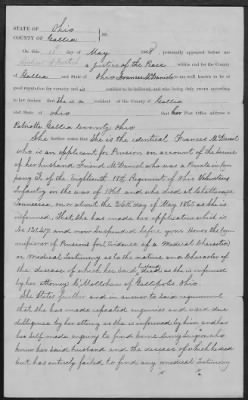 STATE OF Ohio
COUNTY OF Gallia
On this day of May personally appeared before me
a Justice of the Peace within and for the County
of Gallia and State of Ohio Frances McDaniel well known to be of
good reputation for veracity and entitled to be believed, and who being duly sworn according
to law declares that She is a resident of the County of Gallia
and State of Ohio that her Post Office Address is
Gallia County Ohio
She further states that She is the identical Frances McDaniel
who is an applicant for Pension on account of the service
of her husband McDaniel who was a Private in Com
pany of the Eighteenth 18th Regiment of Ohio Volunteers
Infantry in the war of 1861 and who died at Chattanooga
Tennessee on or about the day of May 1865 as she is
informed, That She has made her application which is
No and now suspended before your Honor the Com
missioner of Pensions for Evidence of a Medical Character
or Medical Testimony as to the nature and Character of
the disease of which her said husband died as she is informed
by her attorney of Gallipolis Ohio.
She States further and in answer to said requirement
that She has made repeated inquiries and used due
dilligence by her attorney as she is informed by him and has
her self made enquiry to find some Army Surgeon who
knew her said husband and the disease of which he died
but has entirely failed to find any medical testimony